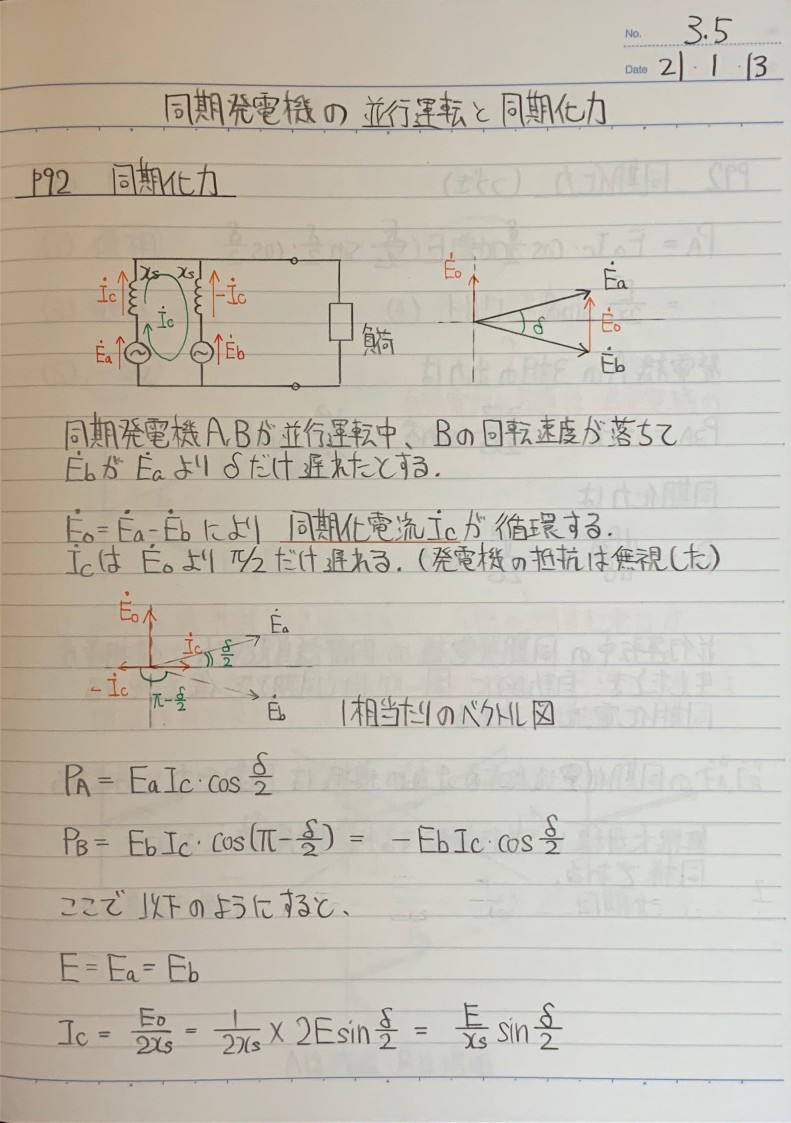 No. 3.5
Date 21・1・13
同期発電機の並行運転と同期化力
P92 同期化力
xs xs
İc -İc
İc
Ėa Ėb
負荷
Ė₀ Ėa
δ Ė₀
Ėb
同期発電機A,Bが並行運転中、Bの回転速度が落ちて
ĖbがĖaよりδだけ遅れたとする.
Ė₀=Ėa-Ėbにより 同期化電流İcが循環する.
İcはĖ₀よりπ/2だけ遅れる.(発電機の抵抗は無視した)
Ė₀ Ėa
İc δ/2
-İc π-δ/2 Ėb
1相当たりのベクトル図
PA = EaIc・cos δ/2
PB = EbIc・cos(π-δ/2) = -EbIc・cos δ/2
ここで以下のようにすると、
E = Ea = Eb
Ic = E₀/2xs = 1/2xs × 2E sin δ/2 = E/xs sin δ/2